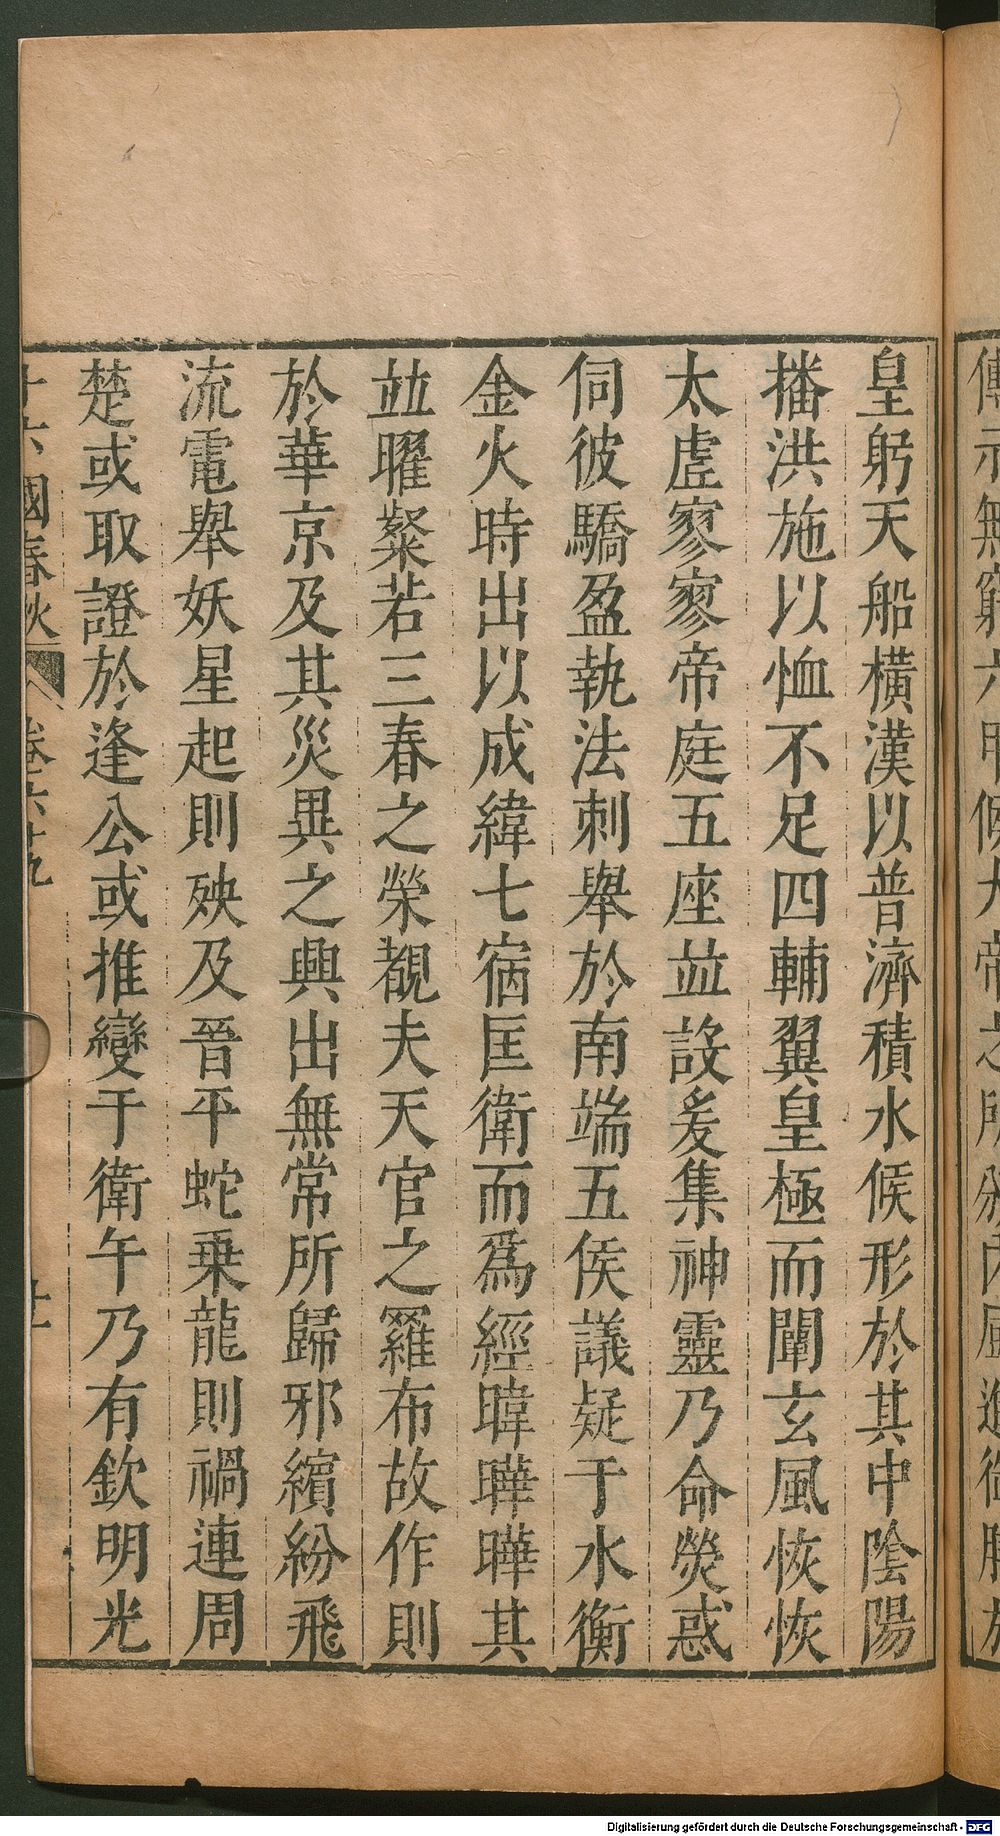 皇躬天船橫漢以普濟積水候形於其中陰陽
播洪施以恤不足四輔翼皇極而闡玄風恢恢
太虛寥寥帝庭五座並設爰集神靈乃命熒惑
伺彼驕盈執法刺舉於南端五侯議疑于水衡
金火時出以成緯七宿匡衛而爲經暐曄曄其
並曜粲若三春之榮覩夫天官之羅布故作則
於華京及其災異之興出無常所歸邪繽紛飛
流電舉妖星起則殃及晉平蛇乗龍則禍連周
楚或取證於逢公或推變于衛午乃有欽明光
十六國春秋 卷六十九
Digitalisierung gefördert durch die Deutsche Forschungsgemeinschaft - DFG